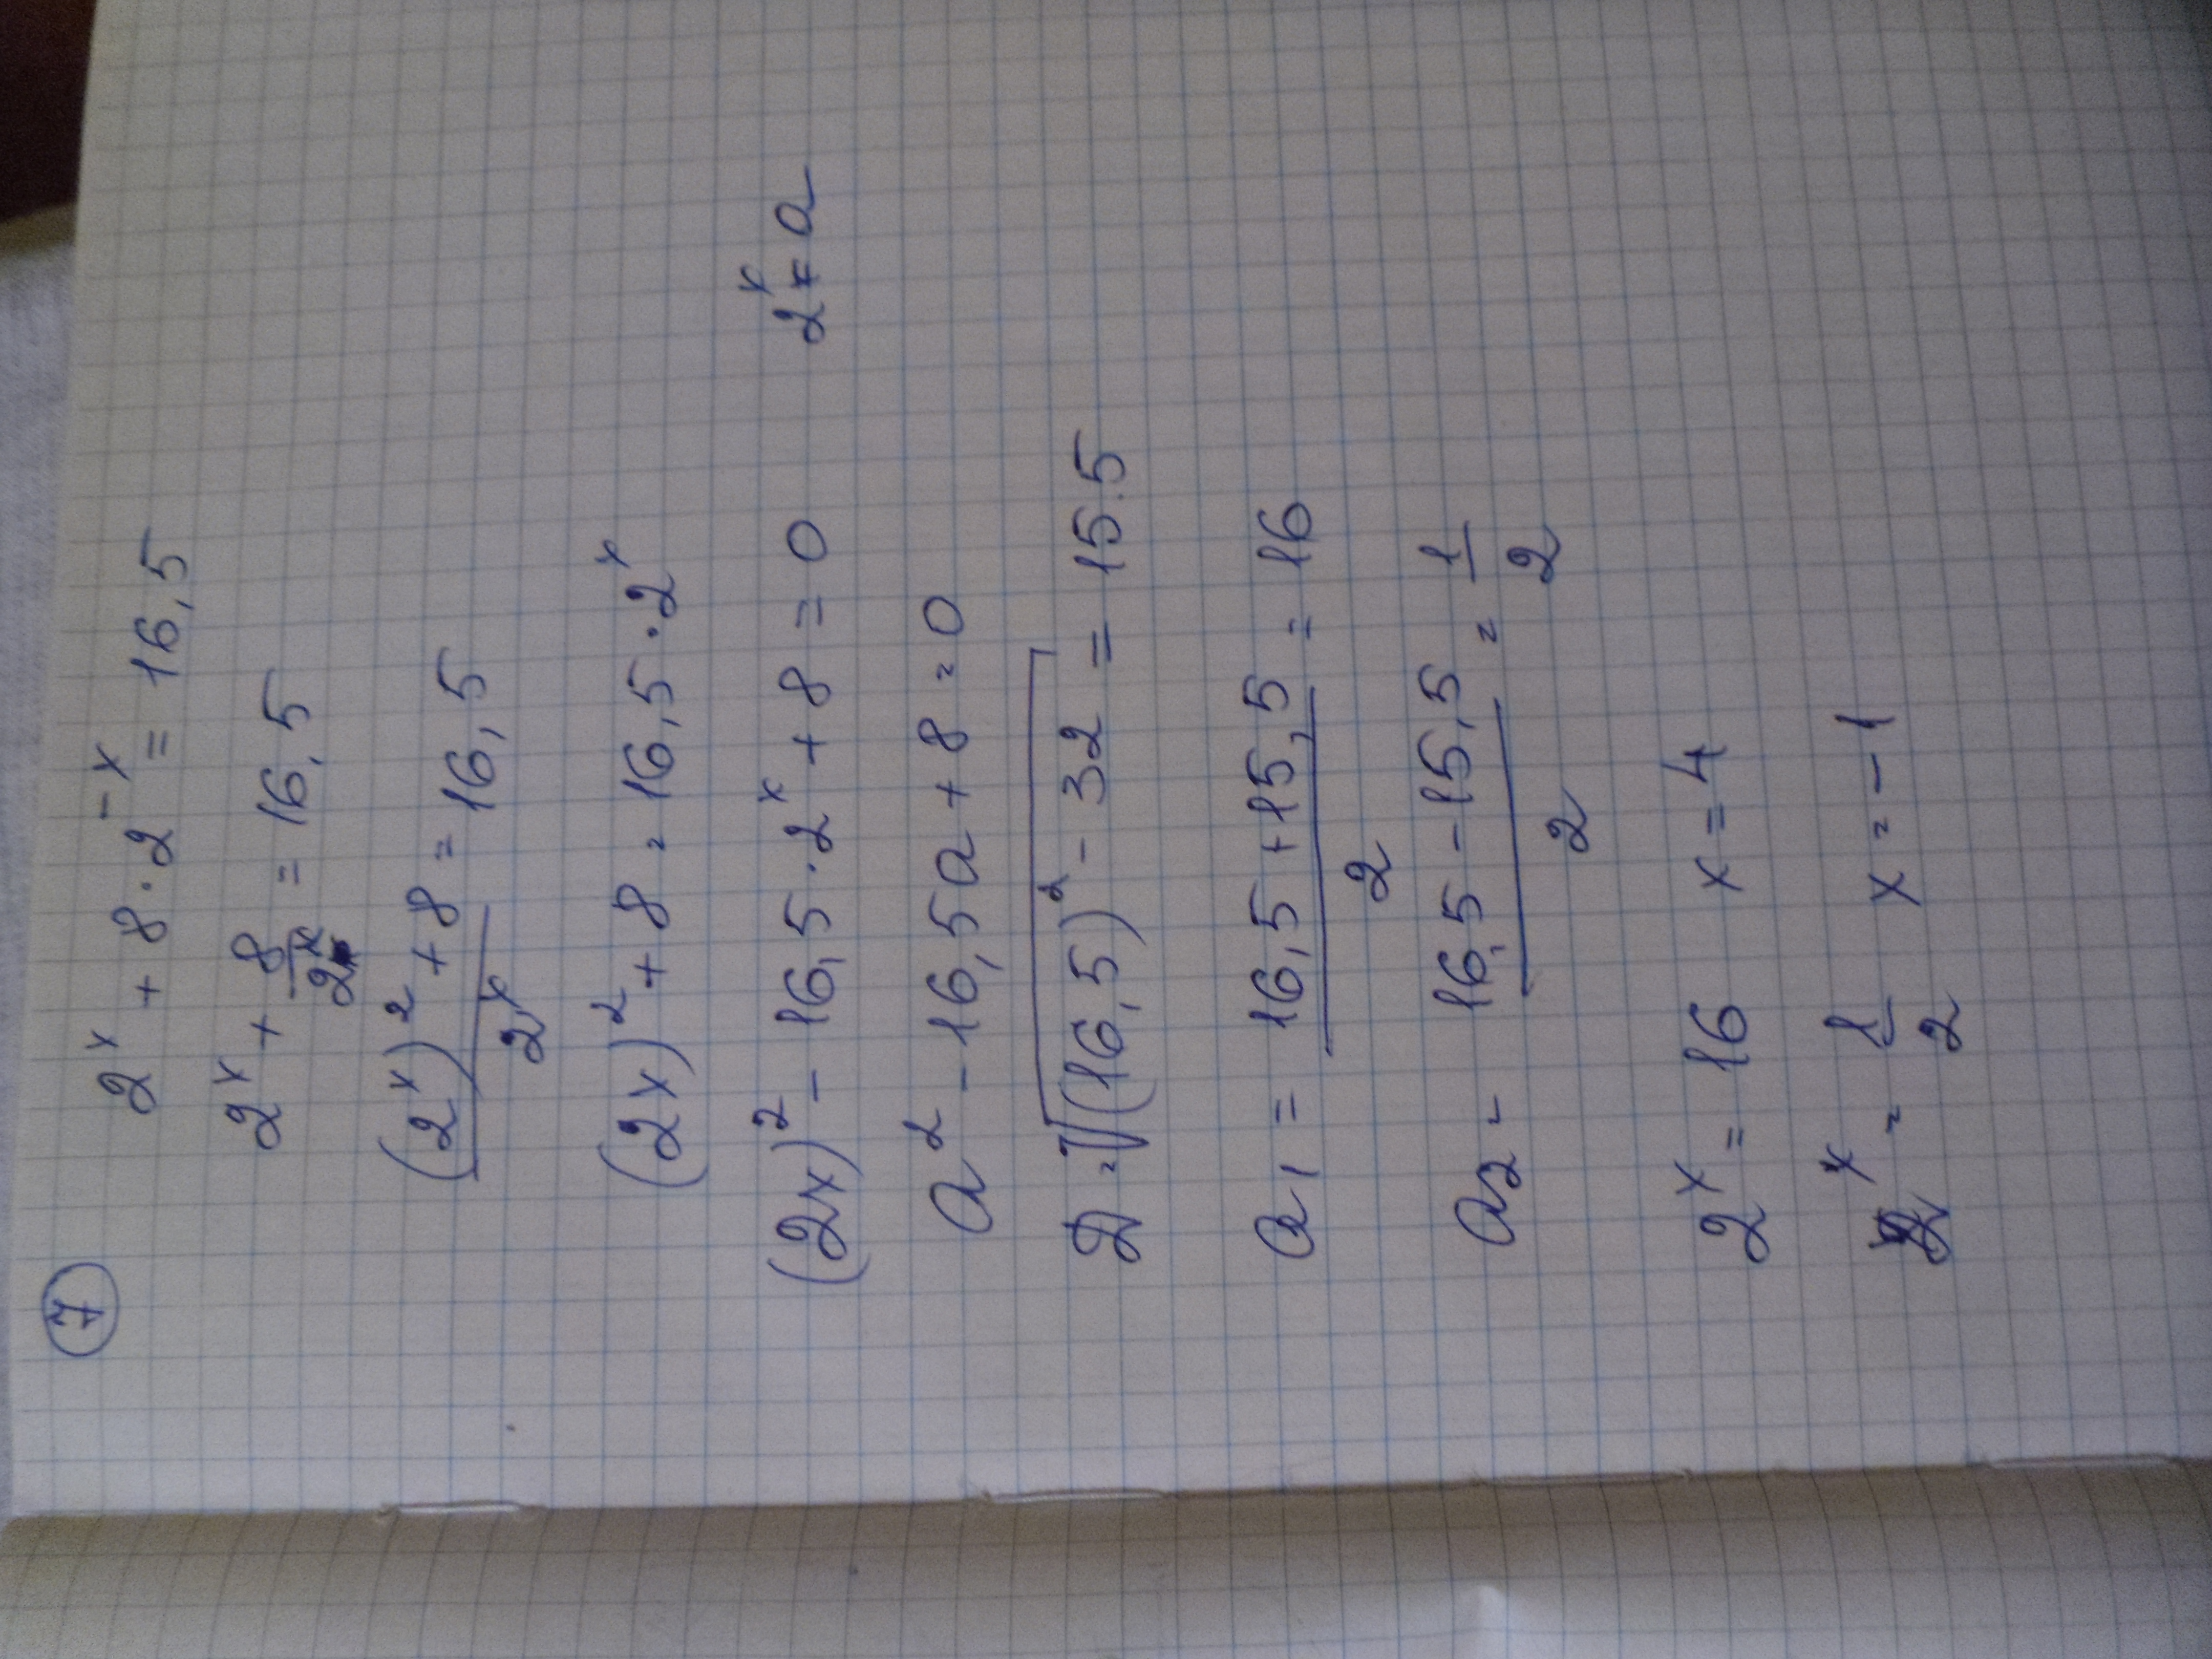 7
2^x + 8 · 2^-x = 16,5
2^x + 8/2^x = 16,5
((2^x)^2 + 8)/2^x = 16,5
(2x)^2 + 8 = 16,5 · 2^x
(2x)^2 - 16,5 · 2^x + 8 = 0 2^x = a
a^2 - 16,5a + 8 = 0
D = √((16,5)^2 - 32) = 15.5
a1 = (16,5 + 15,5)/2 = 16
a2 = (16,5 - 15,5)/2 = 1/2
2^x = 16 x = 4
2^x = 1/2 x = -1